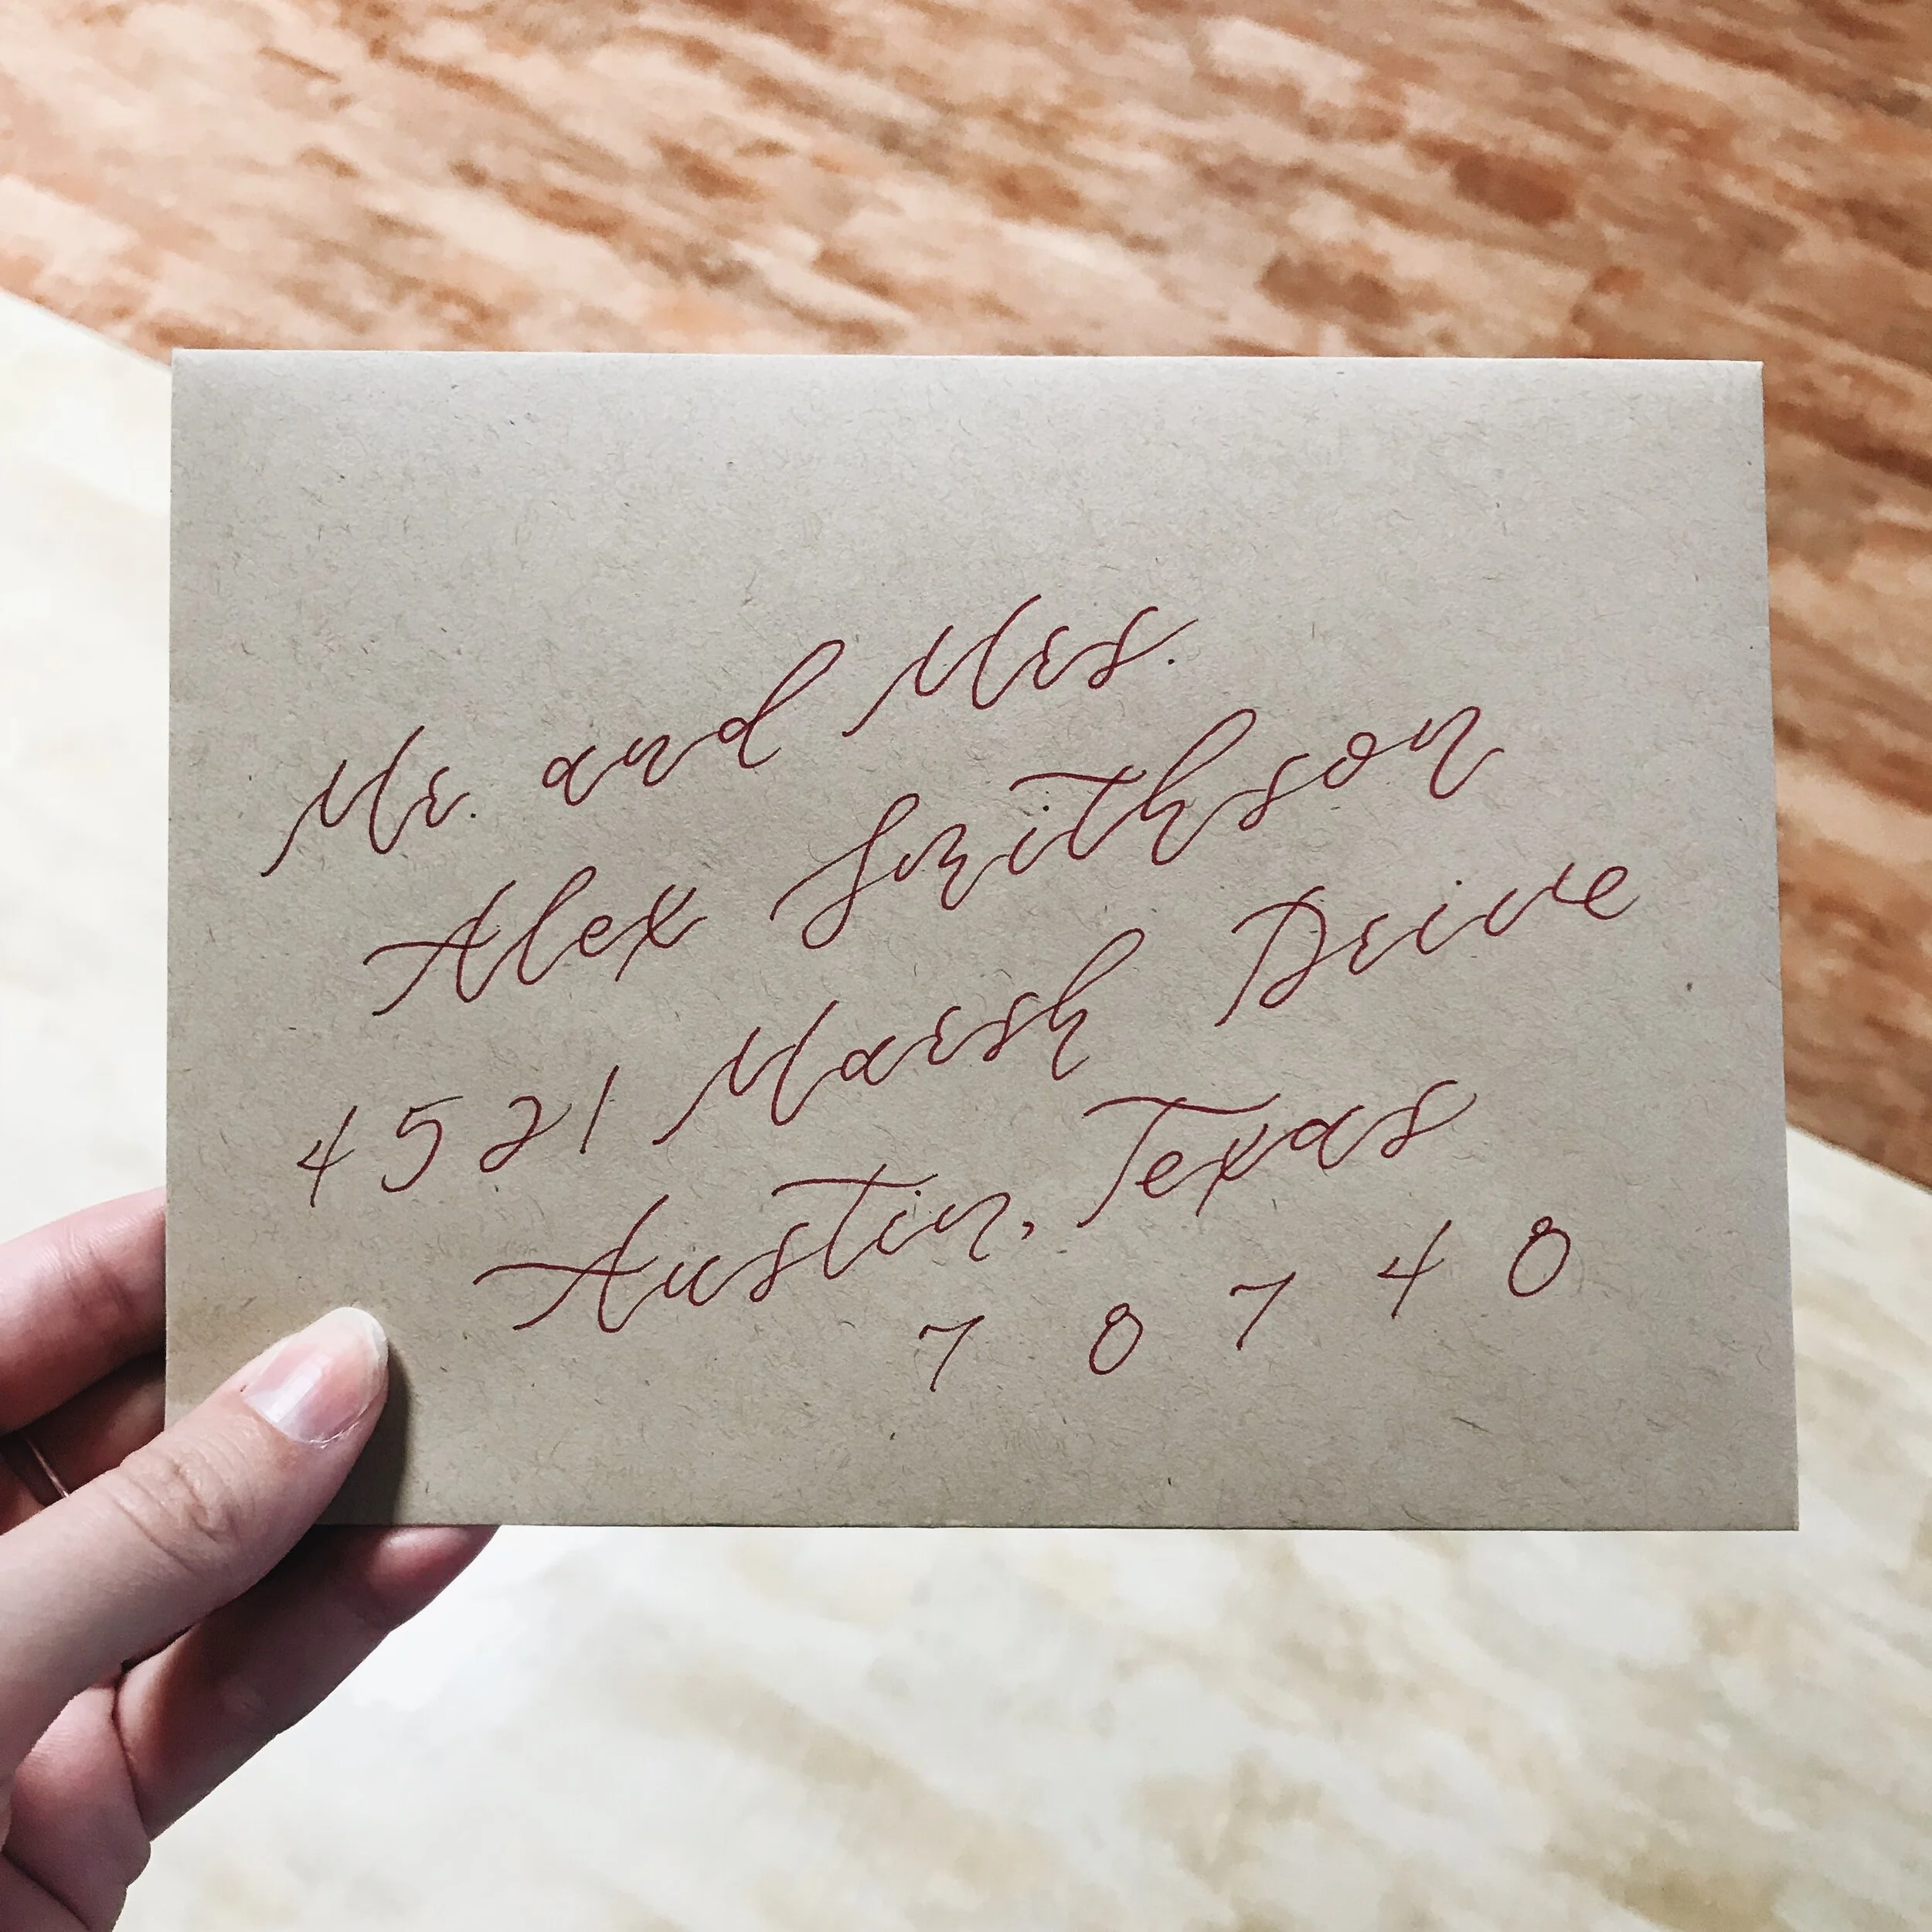 Mr. and Mrs.
Alex Smithson
4521 Marsh Drive
Austin, Texas
7 8 7 4 8